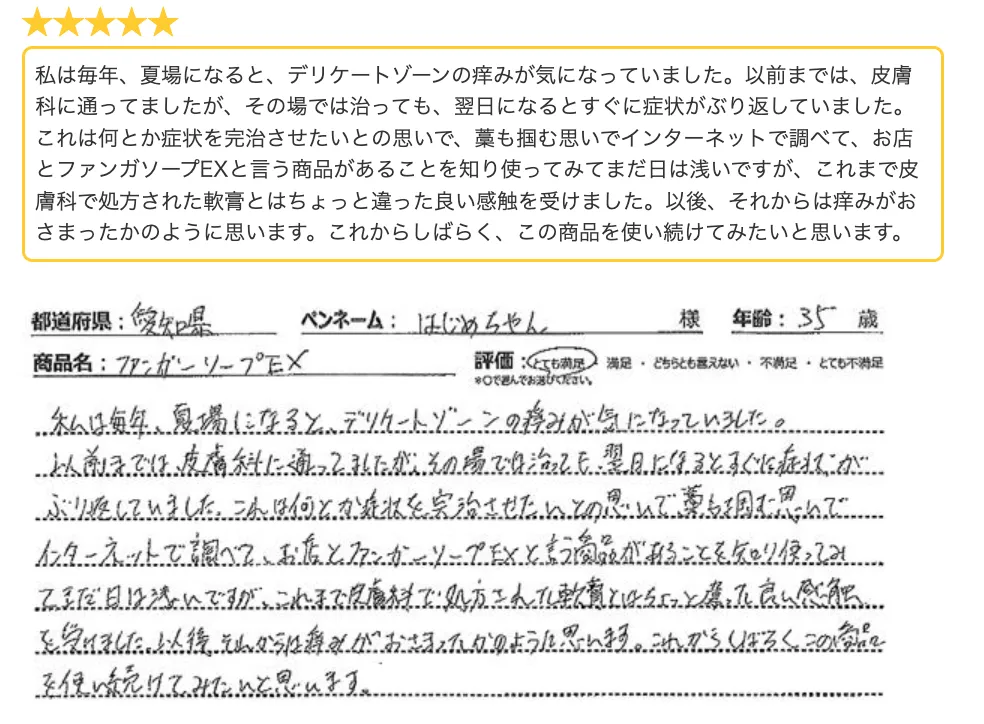 私は毎年、夏場になると、デリケートゾーンの痒みが気になっていました。以前までは、皮膚
科に通ってましたが、その場では治っても、翌日になるとすぐに症状がぶり返していました。
これは何とか症状を完治させたいとの思いで、藁も掴む思いでインターネットで調べて、お店
とファンガソープEXと言う商品があることを知り使ってみてまだ日は浅いですが、これまで皮
膚科で処方された軟膏とはちょっと違った良い感触を受けました。以後、それからは痒みがお
さまったかのように思います。これからしばらく、この商品を使い続けてみたいと思います。
都道府県：愛知県 ペンネーム：はじめちゃん 様 年齢：35 歳
商品名：ファンガーソープEX 評価：とても満足 満足・どちらとも言えない・不満足・とても不満足
※○で選んでお選びください。
私は毎年、夏場になると、デリケートゾーンの痒みが気になっていました。
以前までは、皮膚科に通ってましたが、その場では治っても、翌日になるとすぐに症状が
ぶり返していました。これは何とか症状を完治させたいとの思いで、藁も掴む思いで
インターネットで調べて、お店とファンガーソープEXと言う商品があることを知り使ってみ
てまだ日は浅いですが、これまで皮膚科で処方された軟膏とはちょっと違った良い感触
を受けました。以後、それからは痒みがおさまったかのように思います。これからしばらく、この商品
を使い続けてみたいと思います。